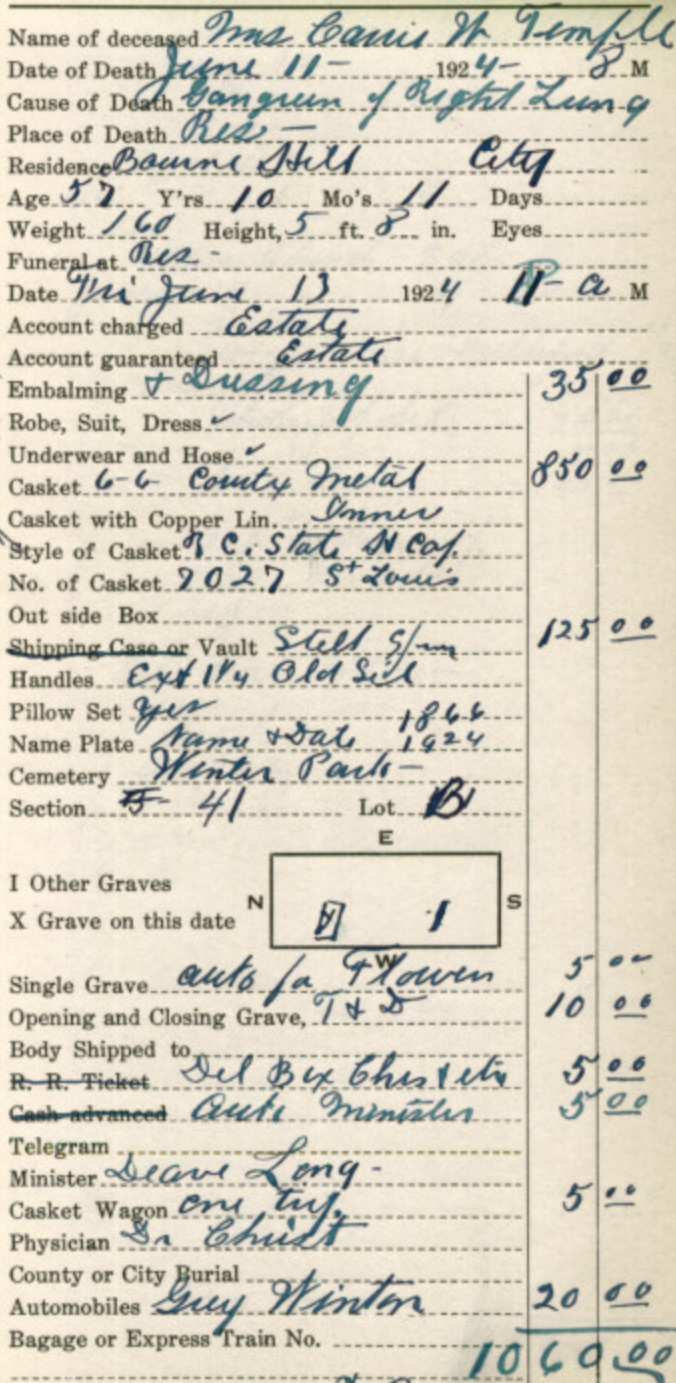 Name of deceased Mrs Carrie W Temple
Date of Death June 11 - 1924 - 8 M
Cause of Death Gangreen of Right Lung
Place of Death Res -
Residence Bourne Hill City
Age 57 Y'rs 10 Mo's 11 Days
Weight 160 Height, 5 ft. 8 in. Eyes
Funeral at Res -
Date Fri June 13 1924 11 - a M
Account charged Estate
Account guaranteed Estate
Embalming & Dressing 35 00
Robe, Suit, Dress ✓
Underwear and Hose ✓
Casket 6-6 County Metal 850 00
Casket with Copper Lin. Inner
Style of Casket C. State
No. of Casket 7027 St Louis
Out side Box
Shipping Case or Vault 125 00
Handles Ext Old Sil
Pillow Set Yes 1866
Name Plate Name & Date 1924
Cemetery Winter Park -
Section 41 Lot B
E
I Other Graves
N S
X Grave on this date 1
W
Single Grave auto for Flowers 5 00
Opening and Closing Grave, T & D 10 00
Body Shipped to
R. R. Ticket Del Box 5 00
Cash advanced Auto Minister 5 00
Telegram
Minister Deave Long -
Casket Wagon one trip. 5 00
Physician Dr Christ
County or City Burial
Automobiles Grey Winton 20 00
Bagage or Express Train No.
1060.00